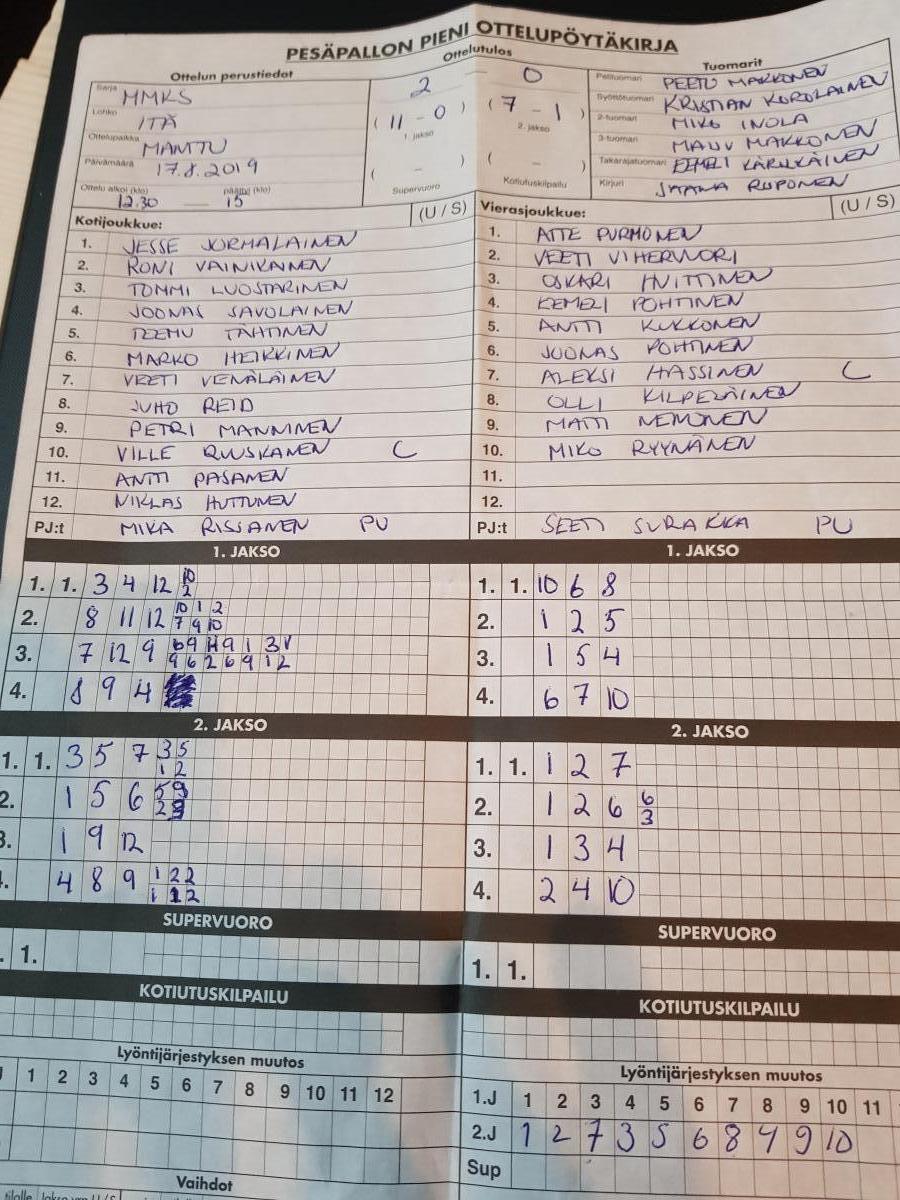 PESÄPALLON PIENI OTTELUPÖYTÄKIRJA
Ottelun perustiedot
Ottelutulos
Tuomarit
Sarja HMKS
Lohko ITÄ
Ottelupaikka MANTTU
Päivämäärä 17.8.2019
Ottelu alkoi (klo) päättyi (klo)
12.30 — 15
2 — 0
( 11 - 0 ) ( 7 - 1 )
1. jakso 2. jakso
( - ) ( - )
Supervuoro Kotiutuskilpailu
Pelituomari PEETU MAKKONEN
Syöttötuomari KRISTIAN KOROLAINEN
2-tuomari MIKO INOLA
3-tuomari MAUV MAKKONEN
Takarajatuomari EEMELI KÄRKKÄINEN
Kirjuri RUPONEN
Kotijoukkue: (U / S)
1. JESSE JORMALAINEN
2. RONI VAINIKAINEN
3. TOMMI LUOSTARINEN
4. JOONAS SAVOLAINEN
5. TEEMU TÄHTINEN
6. MARKO HEIKKINEN
7. VEETI VENÄLÄINEN
8. JUHO REID
9. PETRI MANNINEN
10. VILLE RUUSKANEN C
11. ANTTI PASANEN
12. NIKLAS HUTTUNEN
PJ:t MIKA RISSANEN PU
Vierasjoukkue: (U / S)
1. ATTE PURMONEN
2. VEETI VIHERVUORI
3. OSKARI HUITTINEN
4. EEMELI POHTINEN
5. ANTTI KUKKONEN
6. JOONAS POHTINEN
7. ALEKSI HASSINEN C
8. OLLI KILPELÄINEN
9. MATTI NEMONEN
10. MIKO RYYNÄNEN
11.
12.
PJ:t SEETI SURAKKA PU
1. JAKSO
1. 1. 3 4 12 10
2
2. 8 11 12 10 1 2
7 9 10
3. 7 12 9 69 1
9 6 2 6 9 1 2
4. 8 9 4
1. JAKSO
1. 1. 10 6 8
2. 1 2 5
3. 1 5 4
4. 6 7 10
2. JAKSO
1. 1. 3 5 7 3 5
1 2
2. 1 5 6 5 9
2
3. 1 9 12
4. 4 8 9 1 2 2
1 12
2. JAKSO
1. 1. 1 2 7
2. 1 2 6 6
3
3. 1 3 4
4. 2 4 10
SUPERVUORO
. 1.
SUPERVUORO
1. 1.
KOTIUTUSKILPAILU
KOTIUTUSKILPAILU
Lyöntijärjestyksen muutos
1 2 3 4 5 6 7 8 9 10 11 12
Lyöntijärjestyksen muutos
1.J 1 2 3 4 5 6 7 8 9 10 11
2.J 1 2 7 3 5 6 8 4 9 10
Sup
Vaihdot